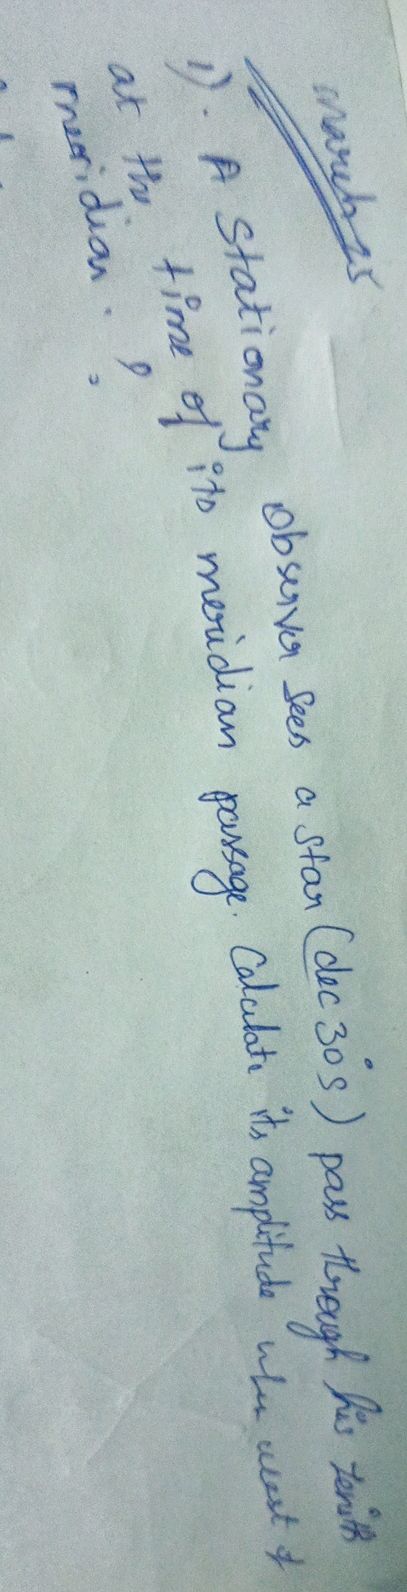 March 25
1). A Stationary observer sees a star (dec 30°S) pass through his zenith
at the time of its meridian passage. Calculate its amplitude when west of
meridian. ?